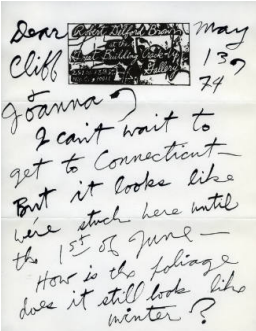 Dear
Robert Delford Brown
& the
Great Building Crack-Up
Gallery
May
13,
74
Cliff
& Joanna,
I can't wait to
get to Connecticut—
But it looks like
we're stuck here until
the 1st of June—
How is the foliage
does it still look like
winter?